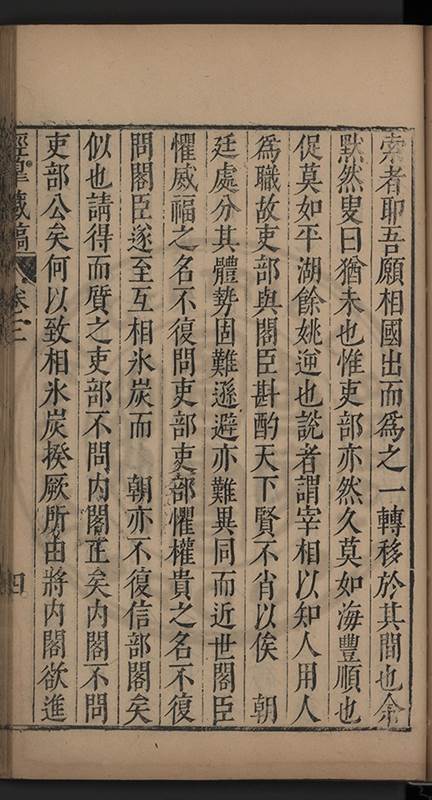 索者耶吾願相國出而為之一轉移於其間也余
默然叟曰猶未也惟吏部亦然久莫如海豐順也
促莫如平湖餘姚逆也說者謂宰相以知人用人
為職故吏部與閣臣斟酌天下賢不肖以俟　朝
廷處分其體勢固難遜避亦難異同而近世閣臣
懼威福之名不復問吏部吏部懼權貴之名不復
問閣臣遂至互相氷炭而　朝亦不復信部閣矣
似也請得而質之吏部不問內閣正矣內閣不問
吏部公矣何以致相氷炭揆厥所由將內閣欲進
經臯藏稿　卷之二　四